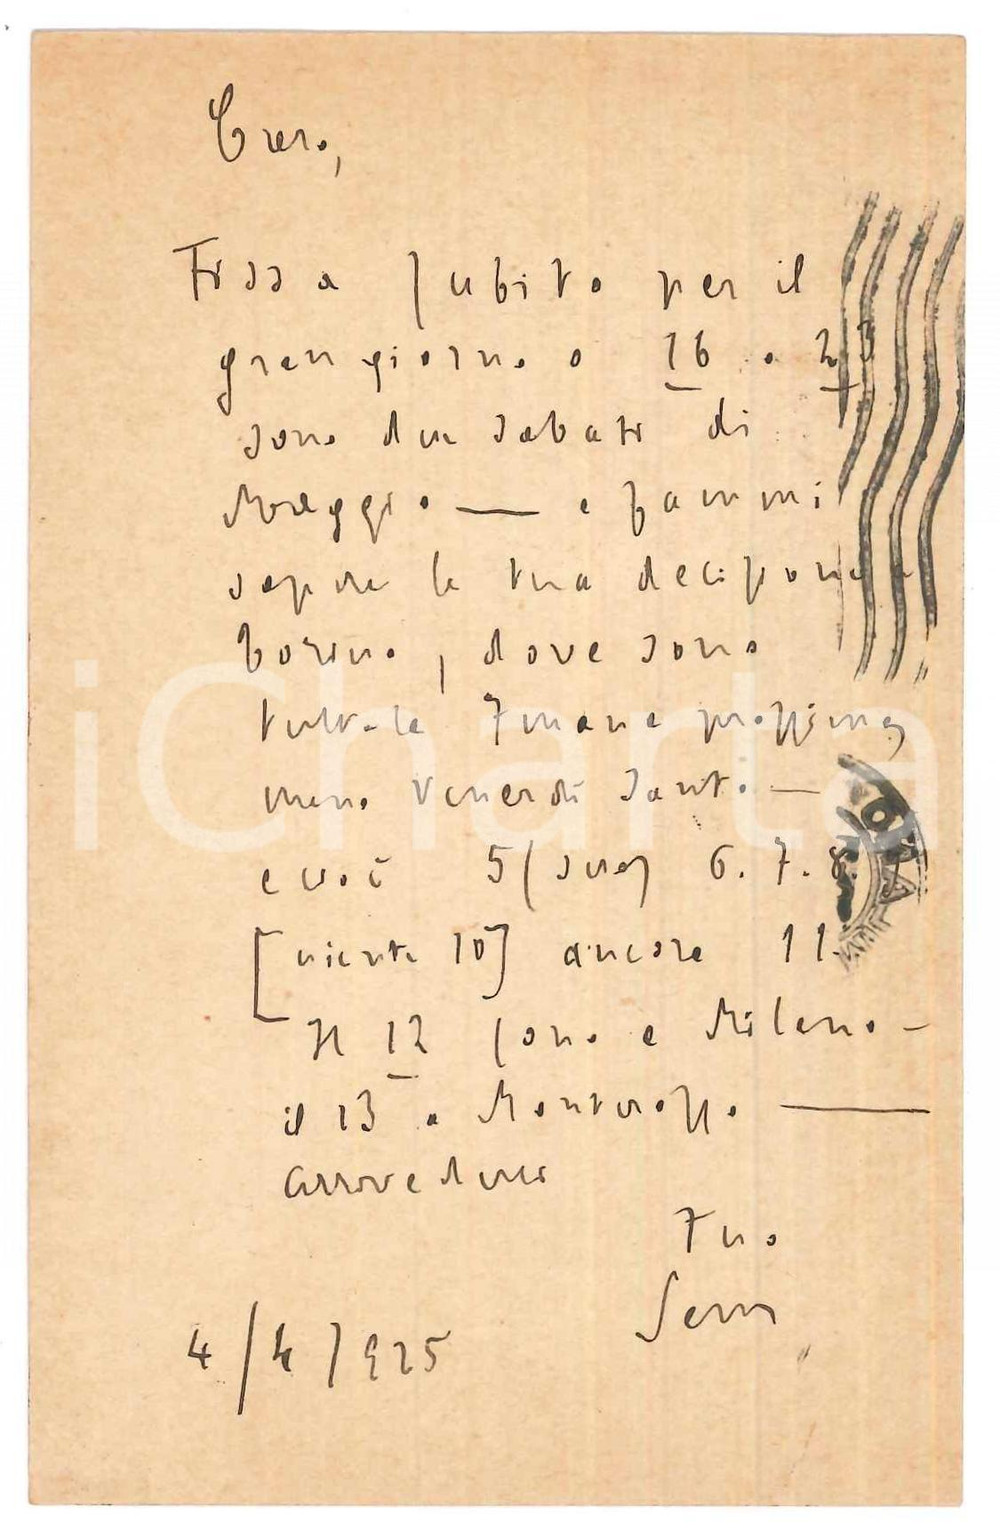 Caro,
Fissa subito per il
gran giorno o 16 o 23
sono due sabati di
Maggio — e fammi
sapere la tua decisione a
Torino, dove sono
tutta la settimana prossima,
meno Venerdì Santo —
cioè 5 (sera) 6. 7. 8.
[niente 10] ancora 11.
Il 12 sono a Milano —
il 13 a Monterosso. —
arrivederci
Tuo
4/4/925
iCharta